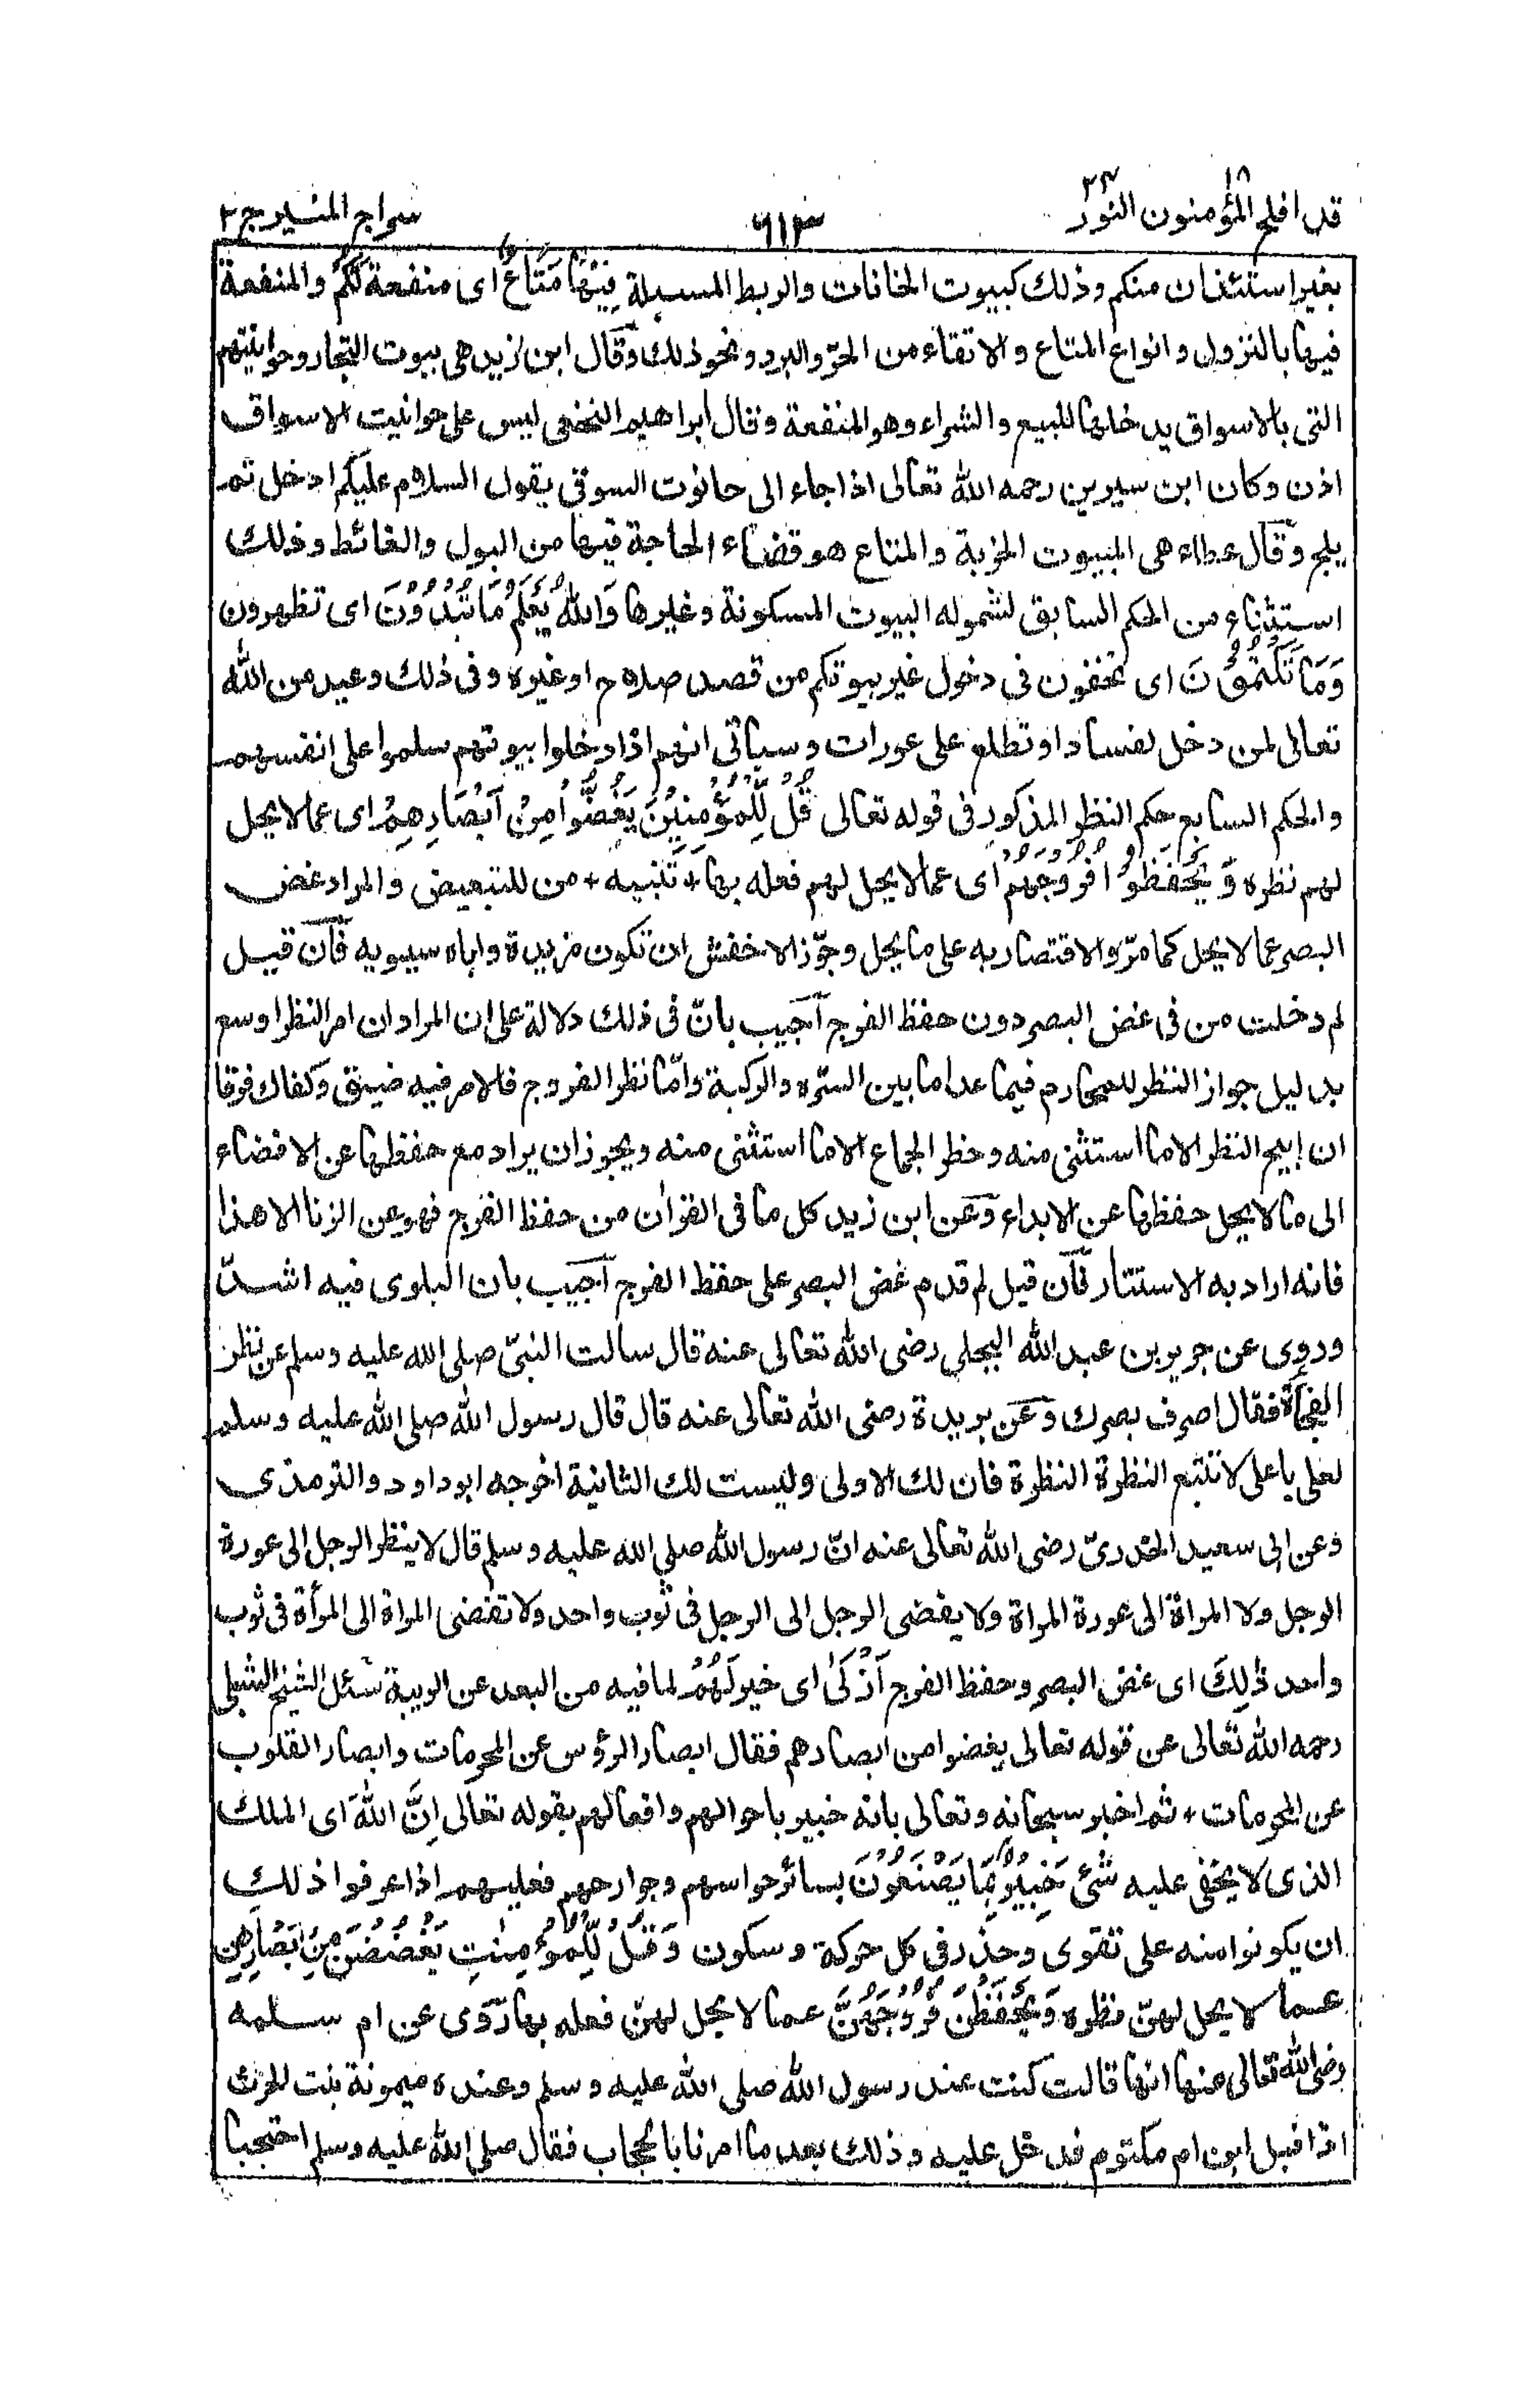 قد افلح ١٨ المؤمنون النور ٢٤
٦١٣
سراج المنير ج ٢
بغير استئذان منكم وذلك كبيوت الخانات والربط المسبلة فِيْهَا مَتَاعٌ اى منفعة لَّكُمْ والمنفعة
فيها بالنزول وانواع المتاع والاتقاء من الحرّ والبرد ونحو ذلك وقال ابن زيد هى بيوت التجار وحوانيتهم
التى بالاسواق يدخلها للبيع والشراء وهو المنفعة وقال ابراهيم النخعى ليس على حوانيت الاسواق
اذن وكان ابن سيرين رحمه الله تعالى اذا جاء الى حانوت السوقى يقول السلام عليكم ادخل ثم
يلج وقال عطاء هى البيوت الخربة والمتاع هو قضاء الحاجة فيها من البول والغائط وذلك
استثناء من الحكم السابق لشموله البيوت المسكونة وغيرها وَاللّٰهُ يَعْلَمُ مَا تُبْدُوْنَ اى تظهرون
وَمَا تَكْتُمُوْنَ اى تخفون فى دخول غير بيوتكم من قصد صلاح او غيره وفى ذلك وعيد من الله
تعالى لمن دخل لفساد او تطلع على عورات وسيأتى انهم اذا دخلوا بيوتهم سلموا على انفسهم
والحكم السابع حكم النظر المذكور فى قوله تعالى قُلْ لِّلْمُؤْمِنِيْنَ يَغُضُّوْا مِنْ اَبْصَارِهِمْ اى عما لا يحل
لهم نظره وَ يَحْفَظُوْا فُرُوْجَهُمْ اى عما لا يحل لهم فعله بها + تنبيه + من للتبعيض والمراد غض
البصر عما لا يحل كما مرّ والاقتصار به على ما يحل وجوّز الاخفش ان تكون مزيدة واباه سيبويه فان قيل
لم دخلت من فى غض البصر دون حفظ الفرج اجيب بانّ فى ذلك دلالة على ان المراد ان امر النظر اوسع
بدليل جواز النظر للمحارم فيما عدا ما بين السرّه والركبة وامّا نظر الفروج فالامر فيه ضيق وكفاك فرقا
ان ابيح النظر الا ما استثنى منه وحظر الجماع الا ما استثنى منه ويجوز ان يراد مع حفظها عن الافضاء
الى ما لا يحل حفظها عن الابداء وعن ابن زيد كل ما فى القرآن من حفظ الفرج فهو عن الزنا الا هذا
فانه اراد به الاستتار فان قيل لم قدم غض البصر على حفظ الفرج اجيب بان البلوى فيه اشدّ
وروى عن جرير بن عبد الله البجلى رضى الله تعالى عنه قال سالت النبىّ صلى الله عليه وسلم عن نظر
الفجأة فقال اصرف بصرك وعن بريدة رضى الله تعالى عنه قال قال رسول الله صلى الله عليه وسلم
لعلى يا على لا تتبع النظرة النظرة فان لك الاولى وليست لك الثانية اخرجه ابو داود والترمذى
وعن ابى سعيد الخدرىّ رضى الله تعالى عنه انّ رسول الله صلى الله عليه وسلم قال لا ينظر الرجل الى عورة
الرجل ولا المراة الى عورة المراة ولا يفضى الرجل الى الرجل فى ثوب واحد ولا تفضى المراة الى المرأة فى ثوب
واحد ذٰلِكَ اى غض البصر وحفظ الفرج اَزْكٰى اى خير لَهُمْ لما فيه من البعد عن الريبة سئل الشيخ الشبلى
رحمه الله تعالى عن قوله تعالى يغضوا من ابصارهم فقال ابصار الرؤس عن المحرمات وابصار القلوب
عن المحرمات + ثم اخبر سبحانه وتعالى بانه خبير باحوالهم وافعالهم بقوله تعالى اِنَّ اللّٰهَ اى الملك
الذى لا يخفى عليه شئ خَبِيْرٌ بِمَا يَصْنَعُوْنَ بسائر حواسهم وجوارحهم فعليهم اذا عرفوا ذلك
ان يكونوا منه على تقوى وحذر فى كل حركة وسكون وَقُلْ لِّلْمُؤْمِنٰتِ يَغْضُضْنَ مِنْ اَبْصَارِهِنَّ
عما لا يحل لهنّ نظره وَيَحْفَظْنَ فُرُوْجَهُنَّ عما لا يحل لهنّ فعله بها روى عن ام سلمه
رضى الله تعالى عنها انها قالت كنت عند رسول الله صلى الله عليه وسلم وعنده ميمونة بنت الحرث
اذ اقبل ابن ام مكتوم فدخل عليه وذلك بعد ما امرنا بالحجاب فقال صلى الله عليه وسلم احتجبا